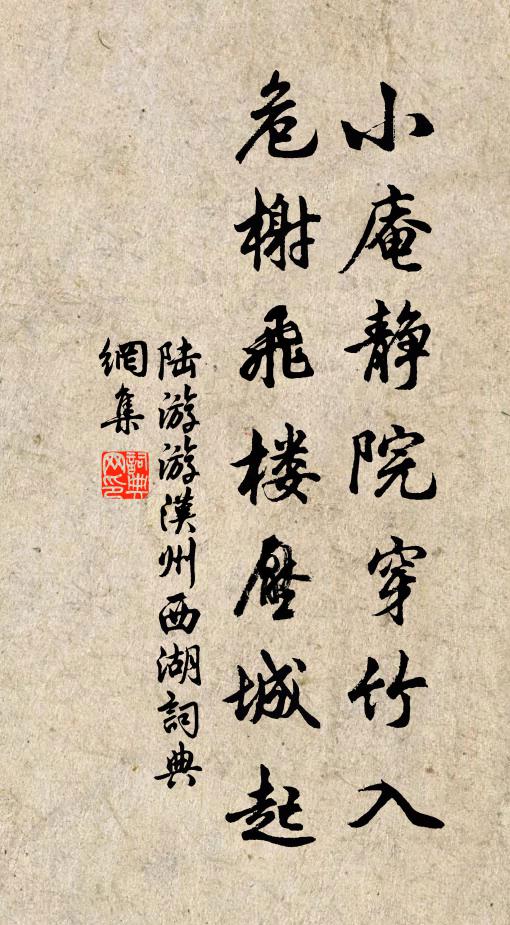 小庵静院穿竹入
危榭飛楼壓城起
陆游游漢州西湖詞典
網集
詞典
网印